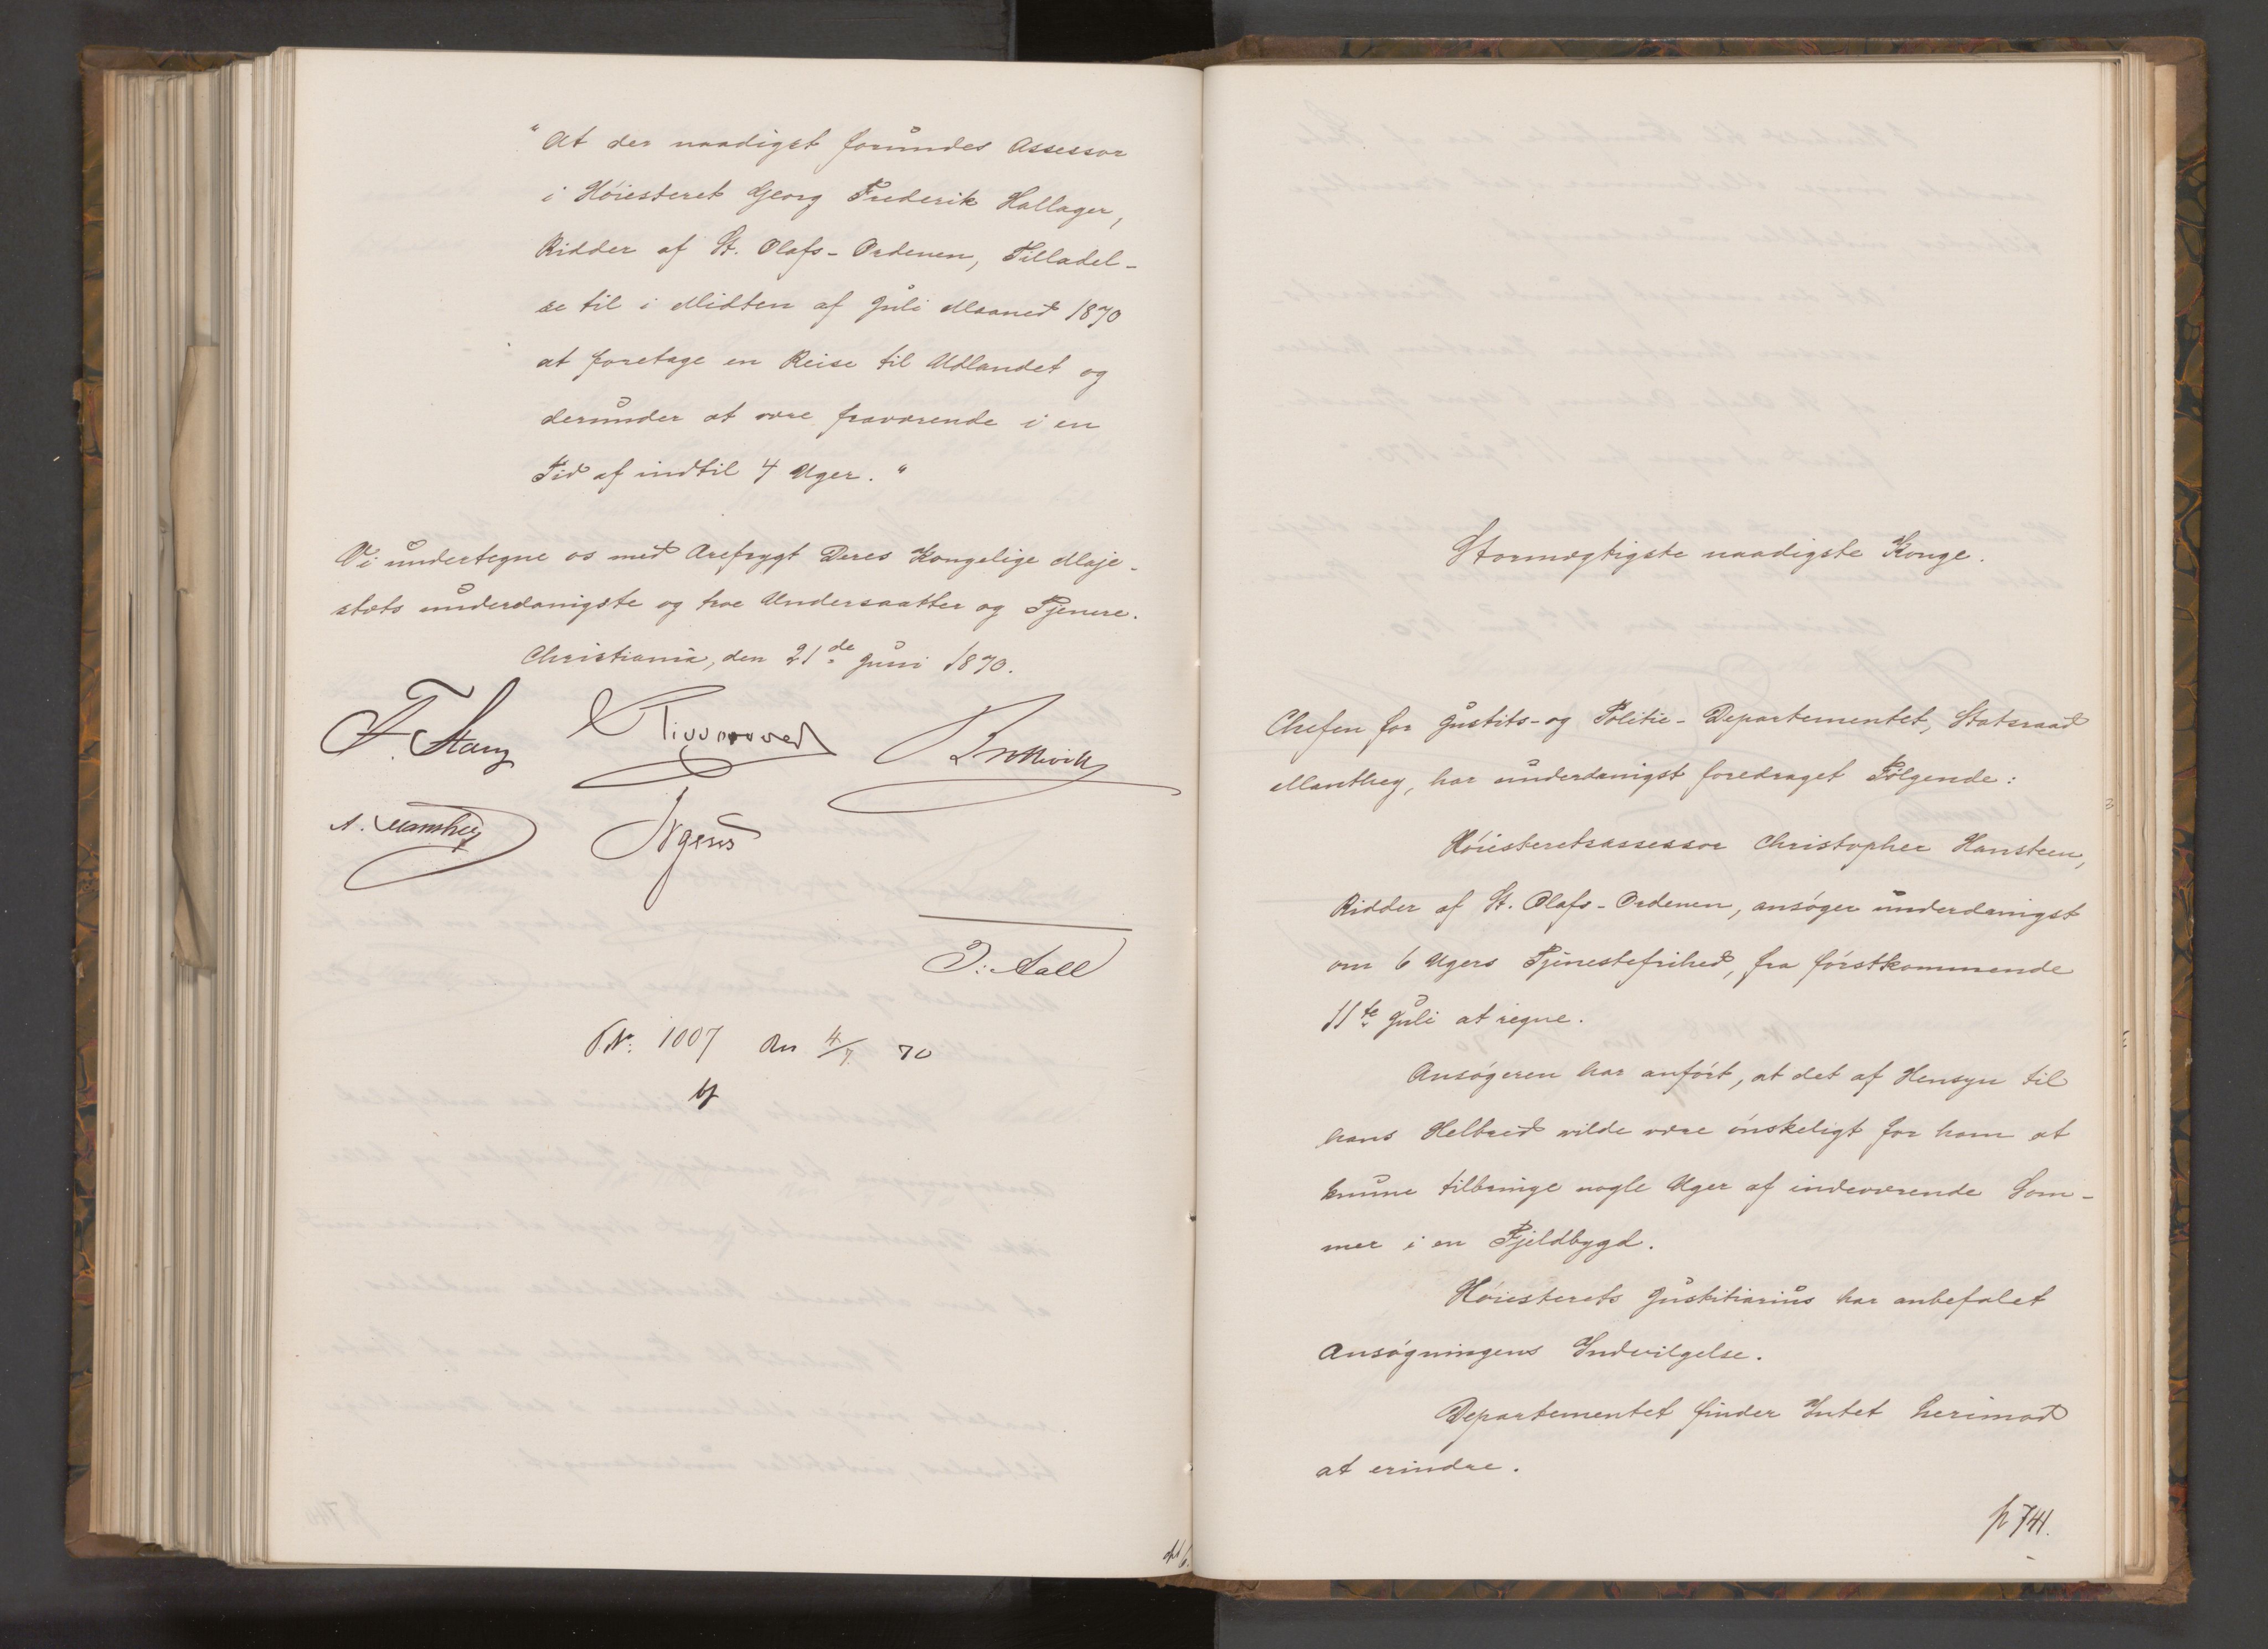 "At der naadigst forundes Assessor
i Høiesteret Georg Frederik Hallager,
Ridder af St. Olafs-Ordenen, Tilladel-
se til i Midten af Juli Maaned 1870
at foretage en Reise til Udlandet og
derunder at være fraværende i en
Tid af indtil 4 Uger."
Vi undertegne os med Ærefrygt Deres Kongelige Maje-
stæts underdanigste og troe Undersaatter og Tjenere.
Christiania, den 21de Juni 1870.
F. Stang
A. Manthey
O: Aall
No: 1007 den 4/7 70
Stormægtigste naadigste Konge.
Chefen for Justits- og Politie-Departementet, Statsraad
Manthey, har underdanigst foredraget Følgende:
Høiesteretsassessor Christopher Hansteen,
Ridder af St. Olafs-Ordenen, ansøger underdanigst
om 6 Ugers Tjenestefrihed, fra førstkommende
11te Juli at regne.
Ansøgeren har anført, at det af Hensyn til
hans Helbred vilde være ønskeligt for ham at
kunne tilbringe nogle Uger af indeværende Som-
mer i en Fjeldbygd.
Høiesterets Justitiarius har anbefalet
Ansøgningens Indvilgelse.
Departementet finder Intet herimod
at erindre.
p 741.